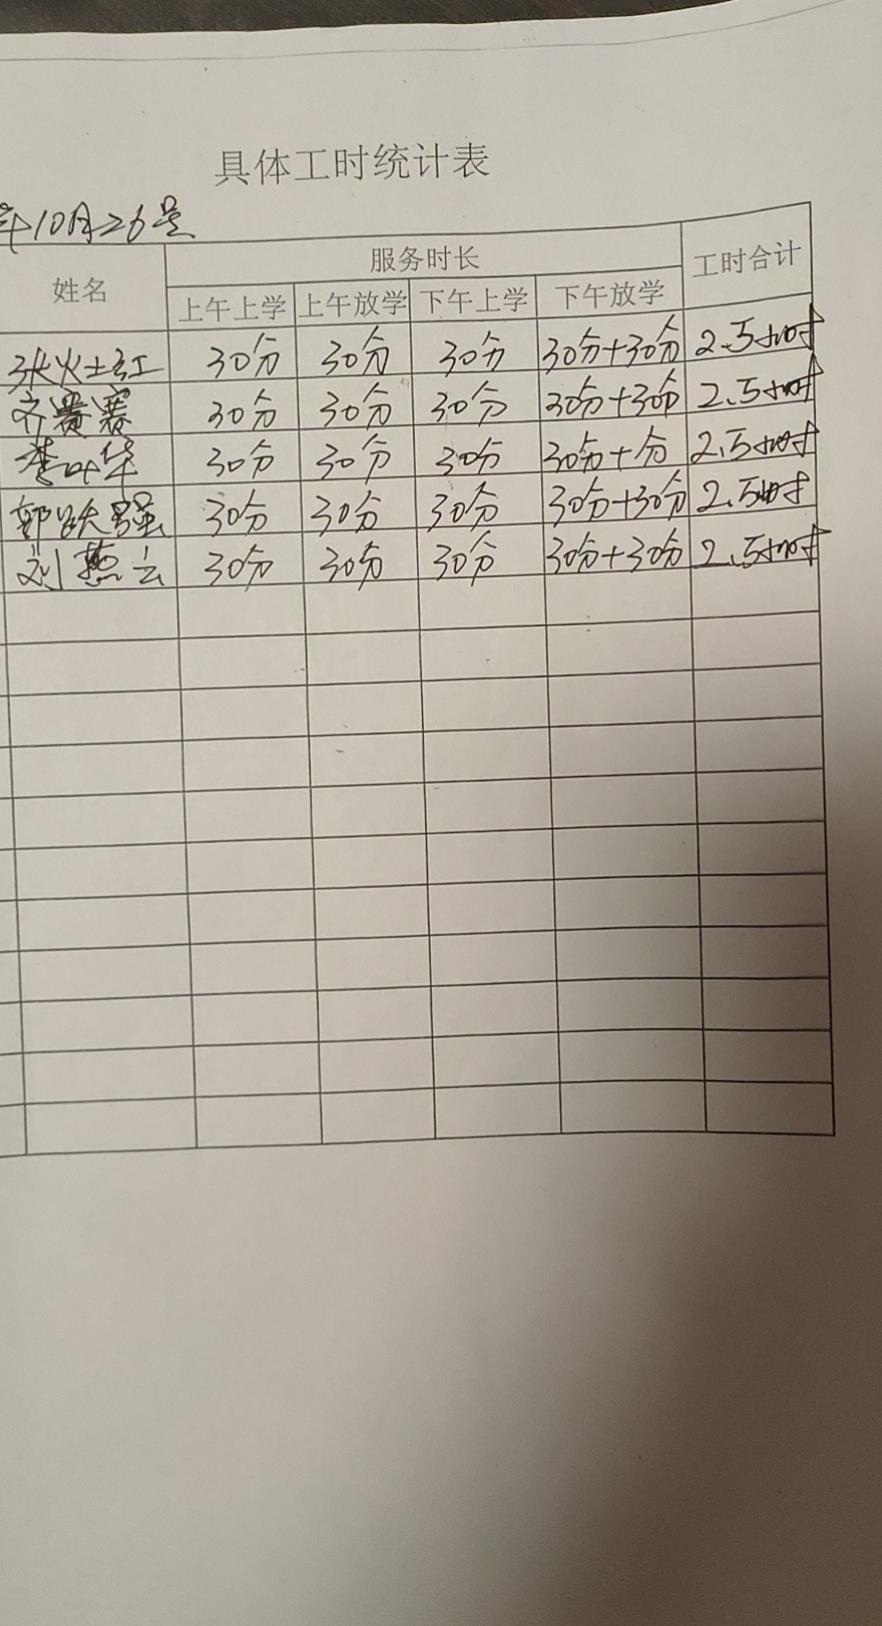 具体工时统计表
年10月26号
姓名 服务时长 工时合计
上午上学 上午放学 下午上学 下午放学
张火土红 30分 30分 30分 30分+30分 2.5小时
齐贵赛 30分 30分 30分 30分+30分 2.5小时
李叶华 30分 30分 30分 30分+分 2.5小时
郭跃强 30分 30分 30分 30分+30分 2.5小时
刘燕云 30分 30分 30分 30分+30分 2.5小时